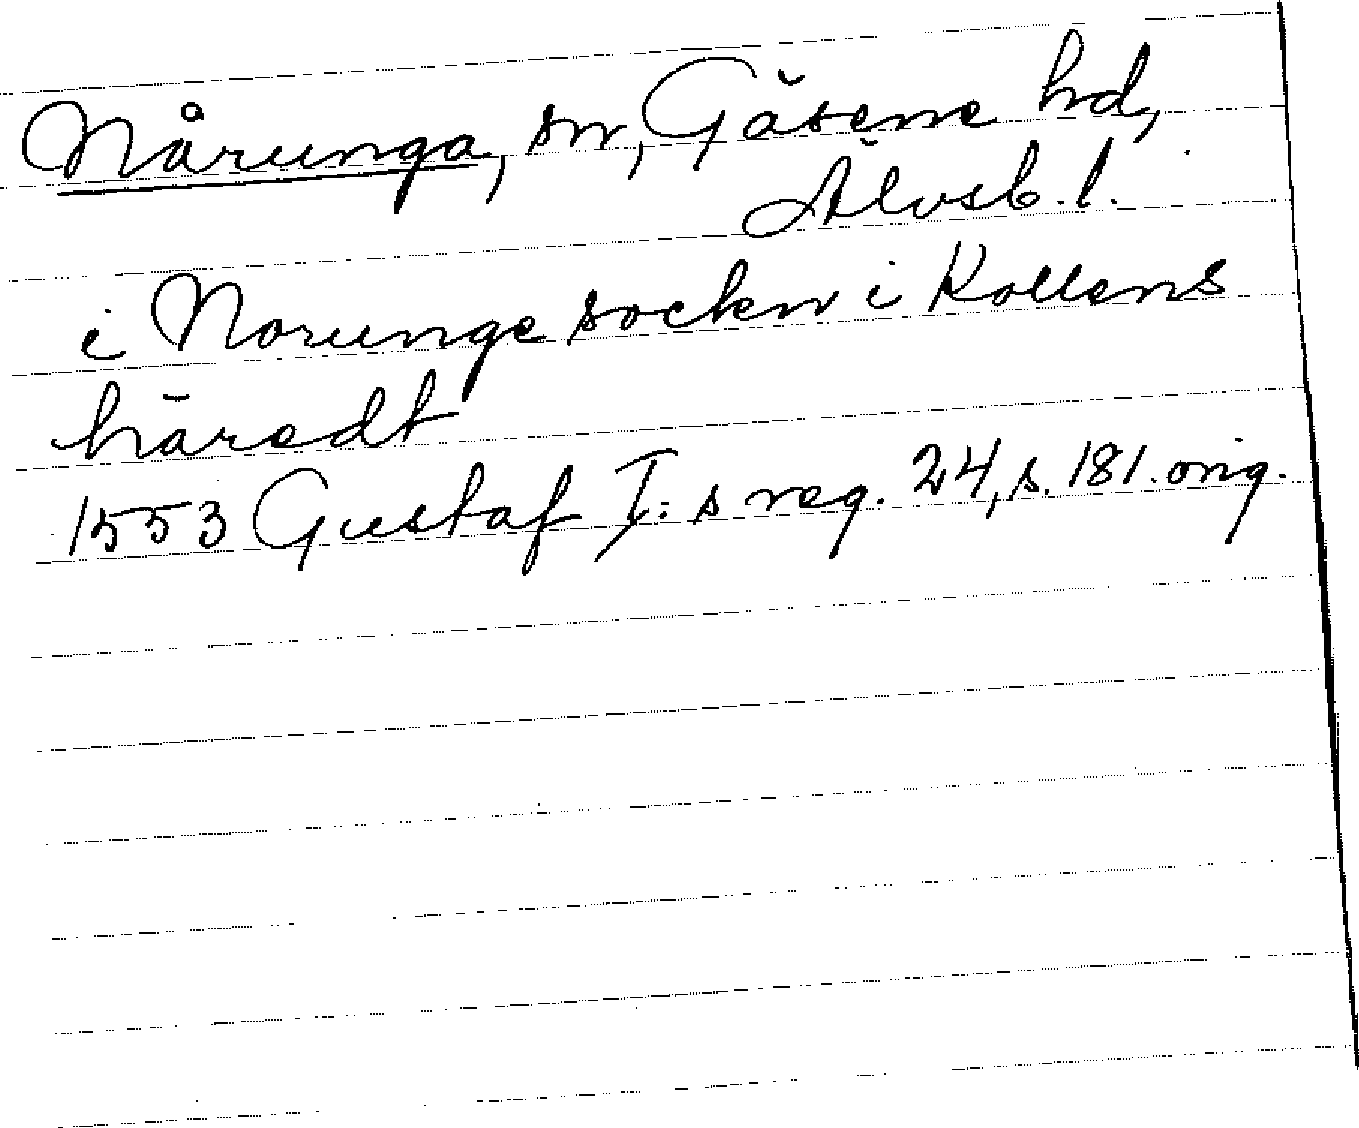 Nårunga, sn, Gäsene hd,
Älvsb. l.
i Norunge sockn i Kollens
häredt
1553 Gustaf I:s reg. 24, s. 181. orig.